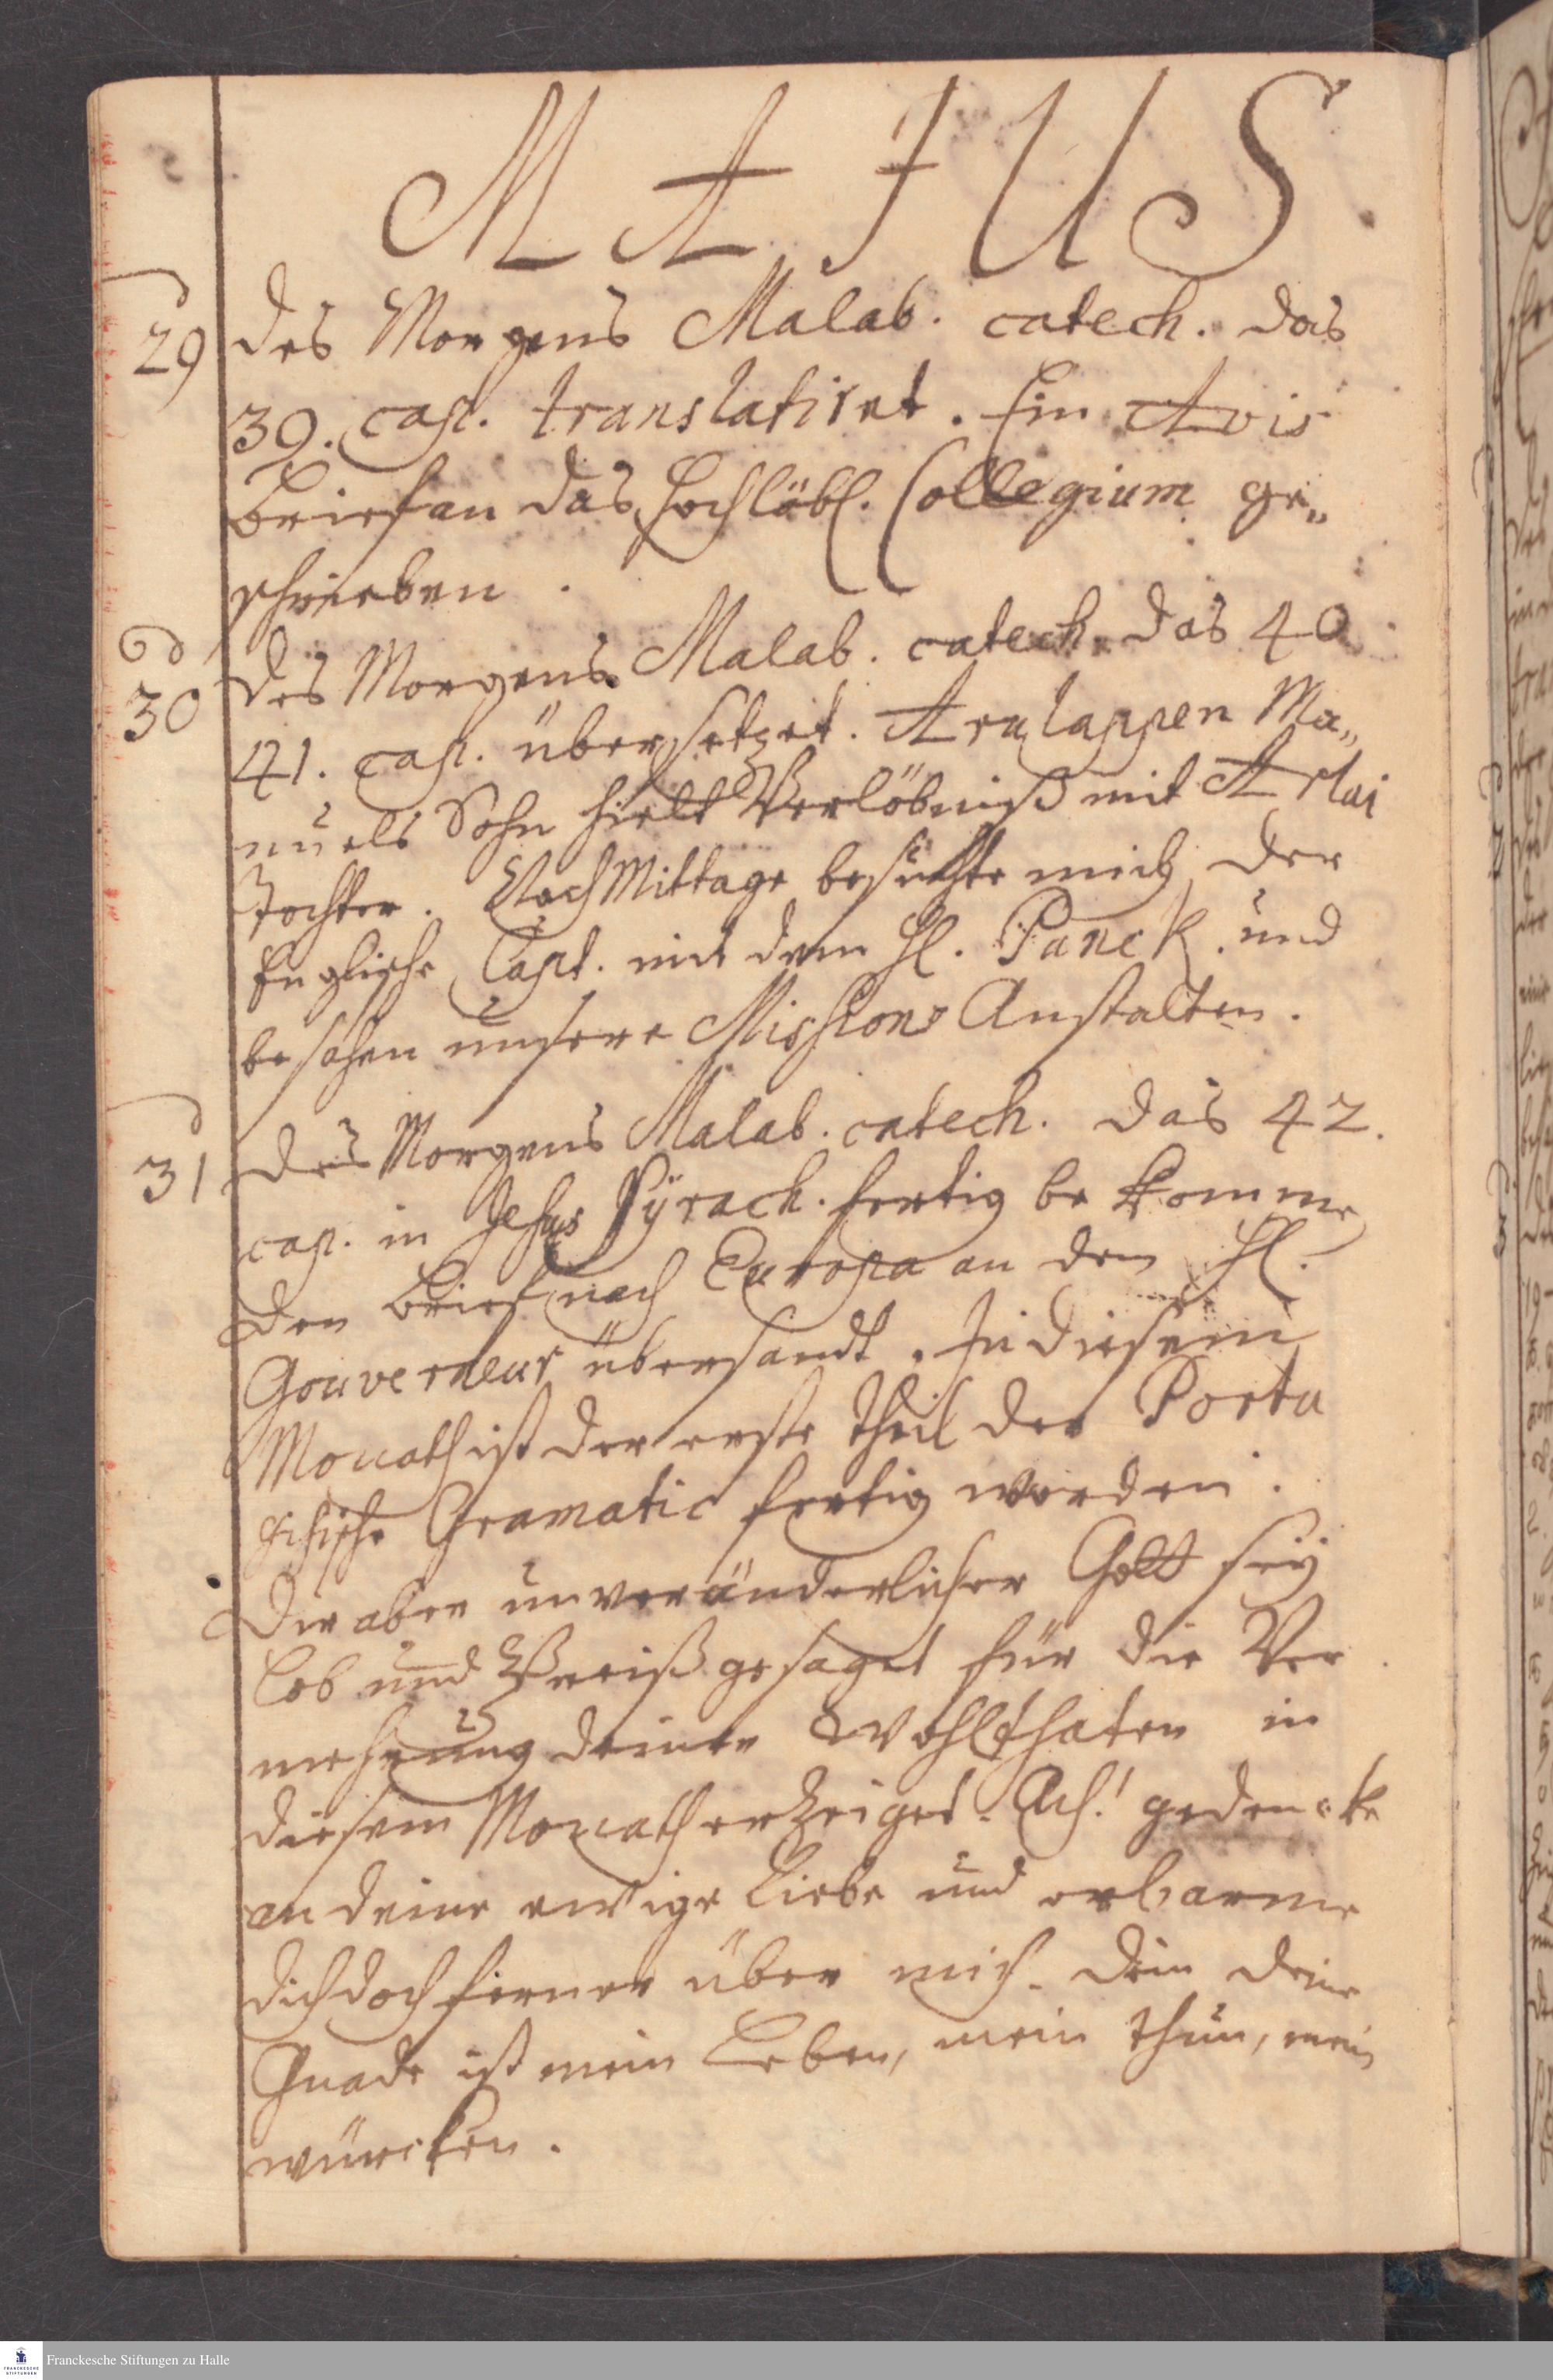 MAJUS
29 des Morgens Malab. catech. das
39. cap. translatiret. Ein Avis
brief an das Hochlöbl. Collegium ge„
schrieben.
30 des Morgens Malab. catech. das 40
41. cap. übersetzet. Arulappen Ma„
nuels Sohn hielt Verlöbniß mit
Tochter. Nach Mittage besuchte mich der
Englische Capt. mit dem H. Panck. und
besahen unsere Missions Anstalten.
31 des Morgens Malab. catech. das 42.
cap. in Jesus Syrach. fertig bekomme
den brief nach Europa an den H.
Gouverneur übersandt. In diesem
Monath ist der erste theil der Portu
gisische Gramatic fertig worden.
Dir aber unveränderlicher Gott seÿ
lob und Preiß gesaget für die Ver
mehrung deiner Wohlthaten in
diesem Monath erzeiget. Ach! gedencke
an deine ewige Liebe und erbarme
dich doch ferner über mich. denn deine
Gnade ist mein Leben, mein thun, mein
würcken.
Franckesche Stiftungen zu Halle
FRANCKESCHE
STIFTUNGEN